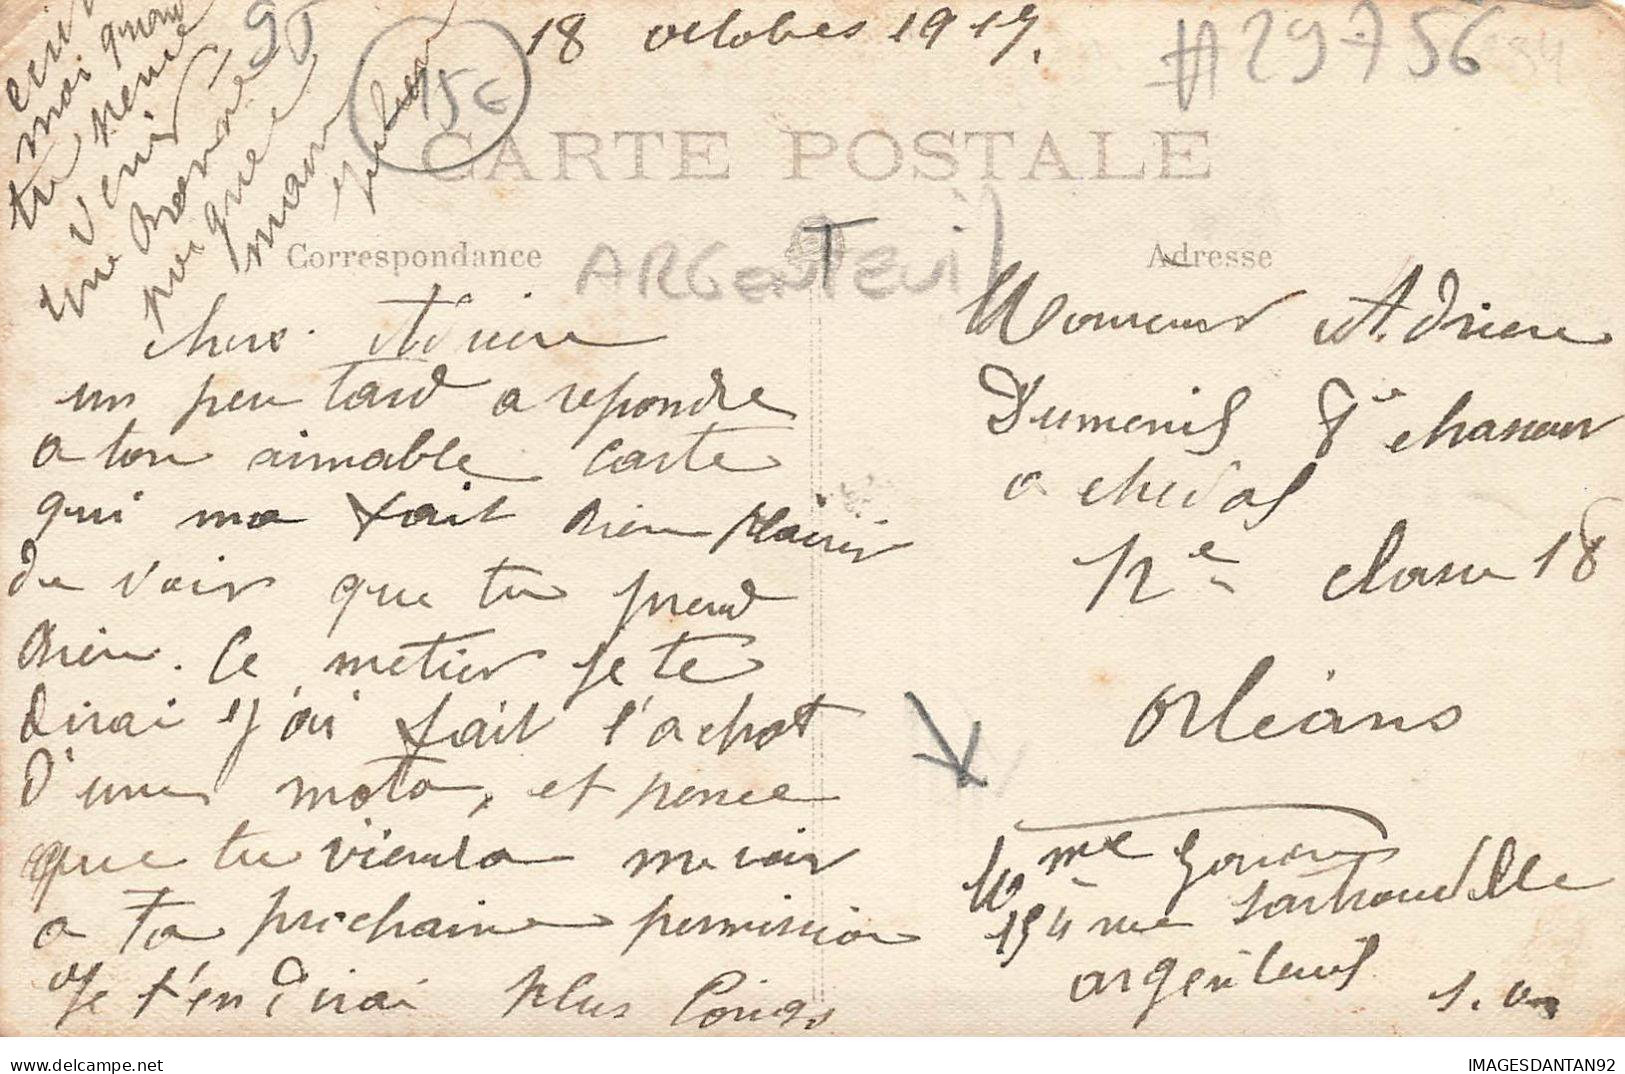 18 octobre 1917.
#29756
95
15€
CARTE POSTALE
Correspondance
ARGENTEUIL
Adresse
cher Adrien
un peu tard a repondre
a ton aimable carte
qui ma fait bien plaisir
de voir que tu prend
bien. Ce metier je te
dirai j'ai fait l'achat
d'une moto, et pence
que tu viendra me voir
a ta prochaine permission
Je t'en dirai plus Long
ecrit
moi quand
tu pense
venir
une
par que
maman
Monsieur Adrien
Dumenil 8e chasseur
a cheval
12e classe 18
orléans
Mme
154 rue Sartrouville
argenteuil
s. o
IMAGESDANTAN92